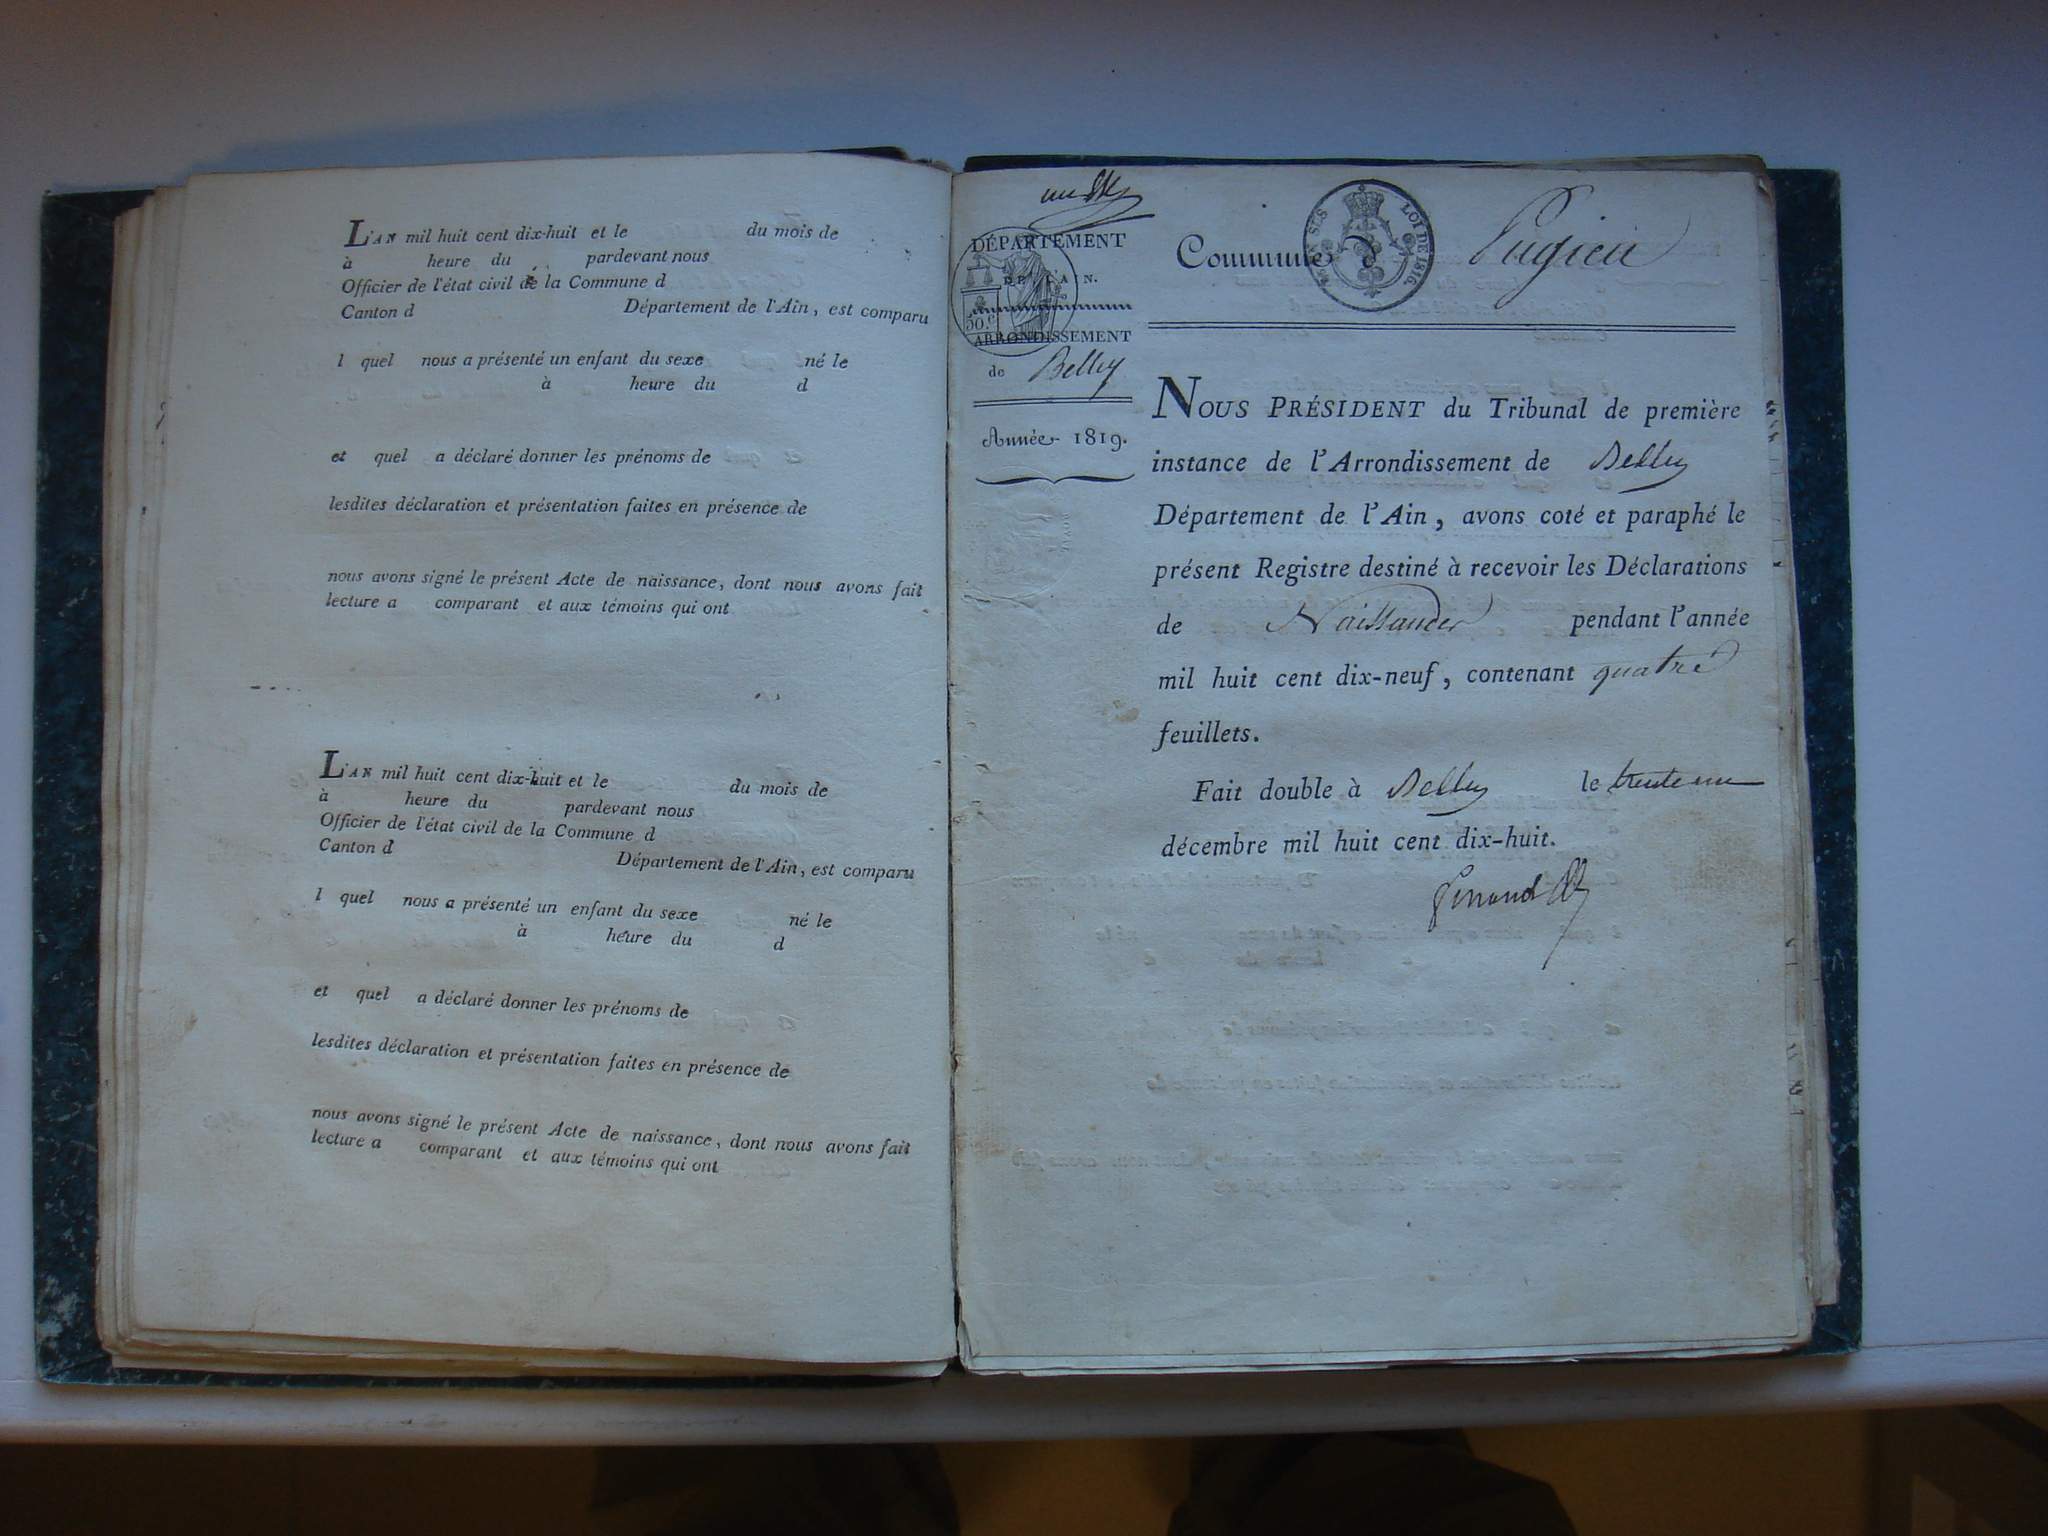 L'AN mil huit cent dix-huit et le du mois de
à heure du pardevant nous
Officier de l'état civil de la Commune d
Canton d Département de l'Ain, est comparu
l quel nous a présenté un enfant du sexe né le
à heure du d
et quel a déclaré donner les prénoms de
lesdites déclaration et présentation faites en présence de
nous avons signé le présent Acte de naissance, dont nous avons fait
lecture a comparant et aux témoins qui ont
L'AN mil huit cent dix-huit et le du mois de
à heure du pardevant nous
Officier de l'état civil de la Commune d
Canton d Département de l'Ain, est comparu
l quel nous a présenté un enfant du sexe né le
à heure du d
et quel a déclaré donner les prénoms de
lesdites déclaration et présentation faites en présence de
nous avons signé le présent Acte de naissance, dont nous avons fait
lecture a comparant et aux témoins qui ont
DÉPARTEMENT
DE L'AIN.
50.c
ARRONDISSEMENT
de Belley
Année 1819.
Commune d Pugieu
LOI DE 1816.
NOUS PRÉSIDENT du Tribunal de première
instance de l'Arrondissement de Belley
Département de l'Ain, avons coté et paraphé le
présent Registre destiné à recevoir les Déclarations
de Naissances pendant l'année
mil huit cent dix-neuf, contenant quatre
feuillets.
Fait double à Belley le trente un
décembre mil huit cent dix-huit.